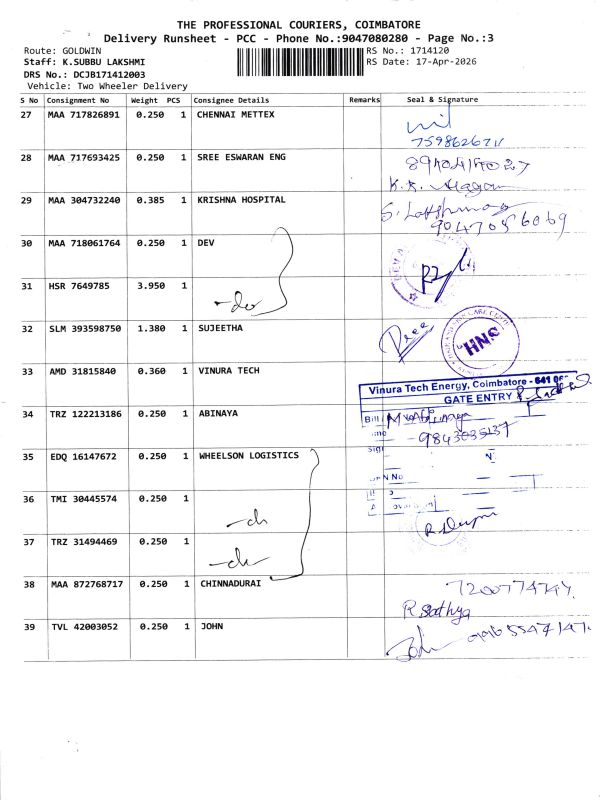 THE PROFESSIONAL COURIERS, COIMBATORE
Delivery Runsheet - PCC - Phone No.:9047080280 - Page No.:3
Route: GOLDWIN
RS No.: 1714120
Staff: K.SUBBU LAKSHMI
RS Date: 17-Apr-2026
DRS No.: DCJB171412003
Vehicle: Two Wheeler Delivery
S No Consignment No Weight PCS Consignee Details Remarks Seal & Signature
27 MAA 717826891 0.250 1 CHENNAI METTEX
7598626711
28 MAA 717693425 0.250 1 SREE ESWARAN ENG
K.K. Alagan
29 MAA 304732240 0.385 1 KRISHNA HOSPITAL
S. Lakshmanan
9047056069
30 MAA 718061764 0.250 1 DEV
31 HSR 7649785 3.950 1
-do
32 SLM 393598750 1.380 1 SUJEETHA
Sree
HNS
33 AMD 31815840 0.360 1 VINURA TECH
Vinura Tech Energy, Coimbatore - 641 06
GATE ENTRY
34 TRZ 122213186 0.250 1 ABINAYA
Bill
9843035137
35 EDQ 16147672 0.250 1 WHEELSON LOGISTICS
Sign
36 TMI 30445574 0.250 1
-do
37 TRZ 31494469 0.250 1
-do
38 MAA 872768717 0.250 1 CHINNADURAI
R Sathya
39 TVL 42003052 0.250 1 JOHN
John